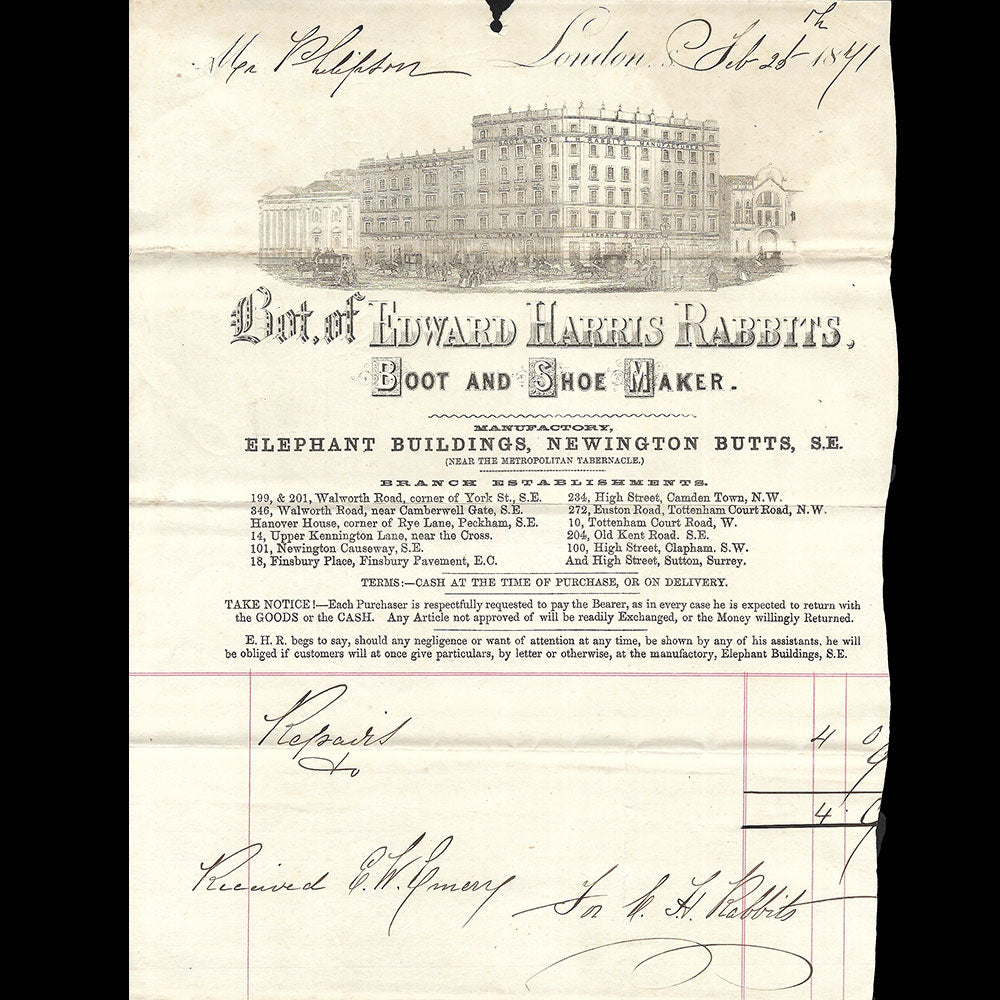 Mr Philipson London, Feb 25th 1871
BOOT & SHOE E. H. RABBITS MANUFACTURER
Bot. of EDWARD HARRIS RABBITS,
BOOT AND SHOE MAKER.
MANUFACTORY,
ELEPHANT BUILDINGS, NEWINGTON BUTTS, S.E.
(NEAR THE METROPOLITAN TABERNACLE.)
BRANCH ESTABLISHMENTS.
199, & 201, Walworth Road, corner of York St., S.E. 234, High Street, Camden Town, N.W.
346, Walworth Road, near Camberwell Gate, S.E. 272, Euston Road, Tottenham Court Road, N.W.
Hanover House, corner of Rye Lane, Peckham, S.E. 10, Tottenham Court Road, W.
14, Upper Kennington Lane, near the Cross. 204, Old Kent Road. S.E.
101, Newington Causeway, S.E. 100, High Street, Clapham. S.W.
18, Finsbury Place, Finsbury Pavement, E.C. And High Street, Sutton, Surrey.
TERMS:—CASH AT THE TIME OF PURCHASE, OR ON DELIVERY.
TAKE NOTICE!—Each Purchaser is respectfully requested to pay the Bearer, as in every case he is expected to return with
the GOODS or the CASH. Any Article not approved of will be readily Exchanged, or the Money willingly Returned.
E. H. R. begs to say, should any negligence or want of attention at any time, be shown by any of his assistants, he will
be obliged if customers will at once give particulars, by letter or otherwise, at the manufactory, Elephant Buildings, S.E.
Repairs 4 9
4 9
Received E. W. Emery
For E. H. Rabbits